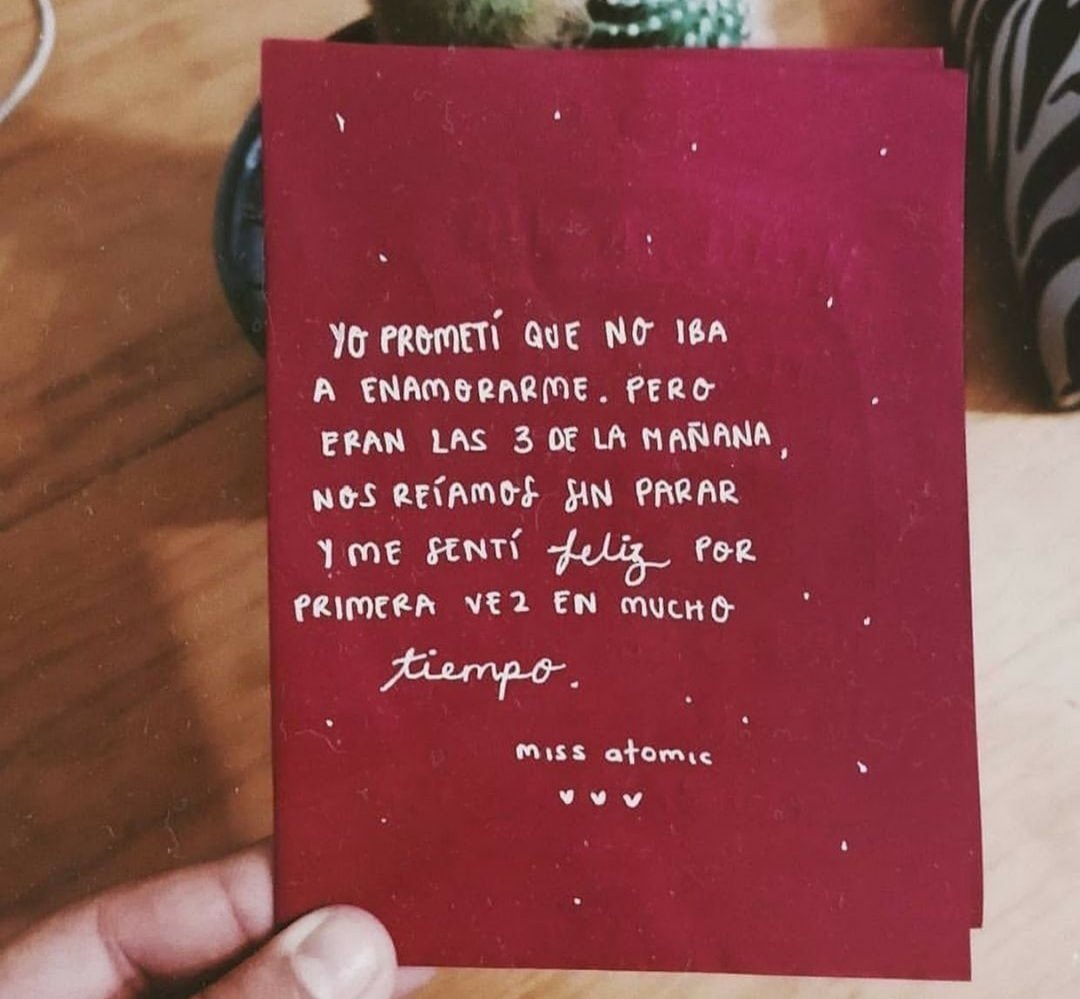 YO PROMETÍ QUE NO IBA
A ENAMORARME. PERO
ERAN LAS 3 DE LA MAÑANA,
NOS REÍAMOS SIN PARAR
Y ME SENTÍ feliz POR
PRIMERA VEZ EN MUCHO
tiempo.
miss atomic